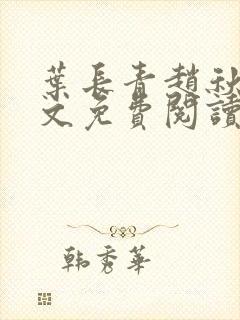 葉長青趙秋
文免費閱讀
韩秀華